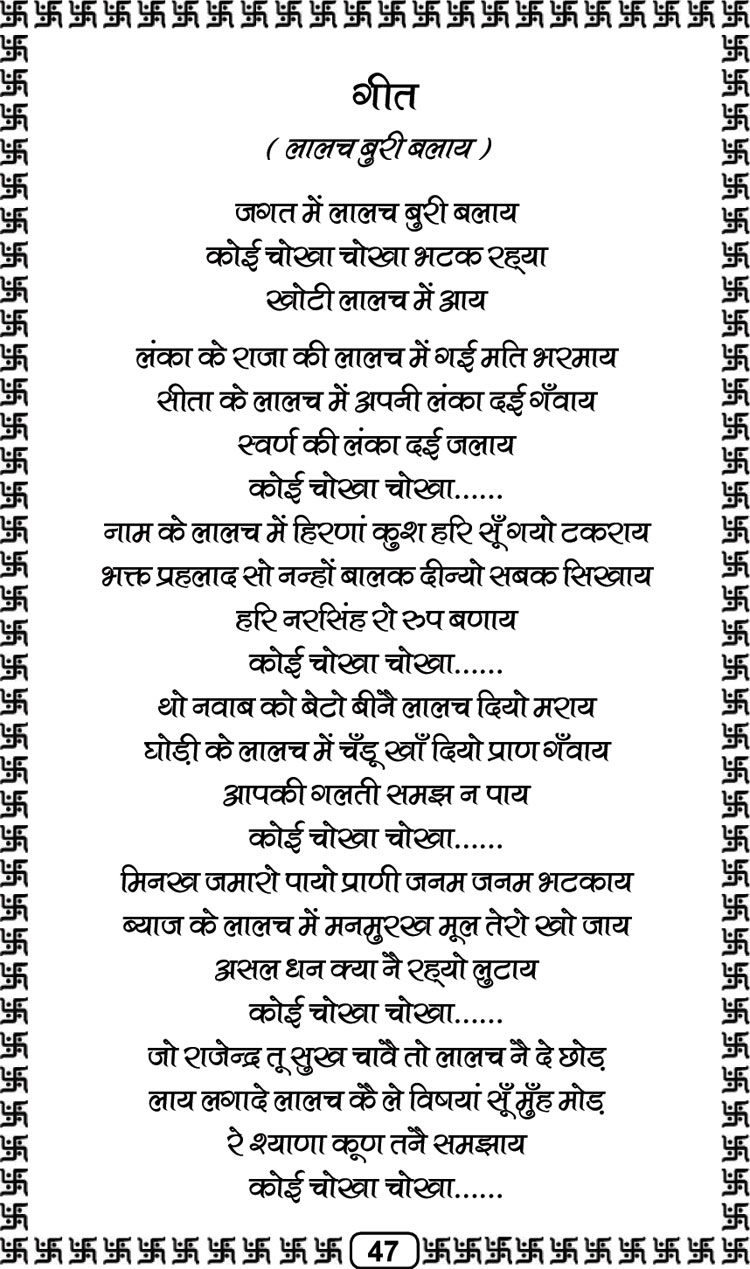 गीत
( लालच बुरी बलाय )
जगत में लालच बुरी बलाय
कोई चोखा चोखा भटक रह्‌या
खोटी लालच में आय
लंका के राजा की लालच में गई मति भरमाय
सीता के लालच में अपनी लंका दई गँवाय
स्वर्ण की लंका दई जलाय
कोई चोखा चोखा......
नाम के लालच में हिरणां कुश हरि सूँ गयो टकराय
भक्त प्रहलाद सो नन्हों बालक दीन्यो सबक सिखाय
हरि नरसिंह रो रुप बणाय
कोई चोखा चोखा......
थो नवाब को बेटो बीनै लालच दियो मराय
घोड़ी के लालच में चँडू खाँ दियो प्राण गँवाय
आपकी गलती समझ न पाय
कोई चोखा चोखा......
मिनख जमारो पायो प्राणी जनम जनम भटकाय
ब्याज के लालच में मनमुरख मूल तेरो खो जाय
असल धन क्या नै रह्‌यो लुटाय
कोई चोखा चोखा......
जो राजेन्द्र तू सुख चावै तो लालच नै दे छोड़
लाय लगादे लालच कै ले विषयां सूँ मुँह मोड़
रे श्याणा कूण तनै समझाय
कोई चोखा चोखा......
47